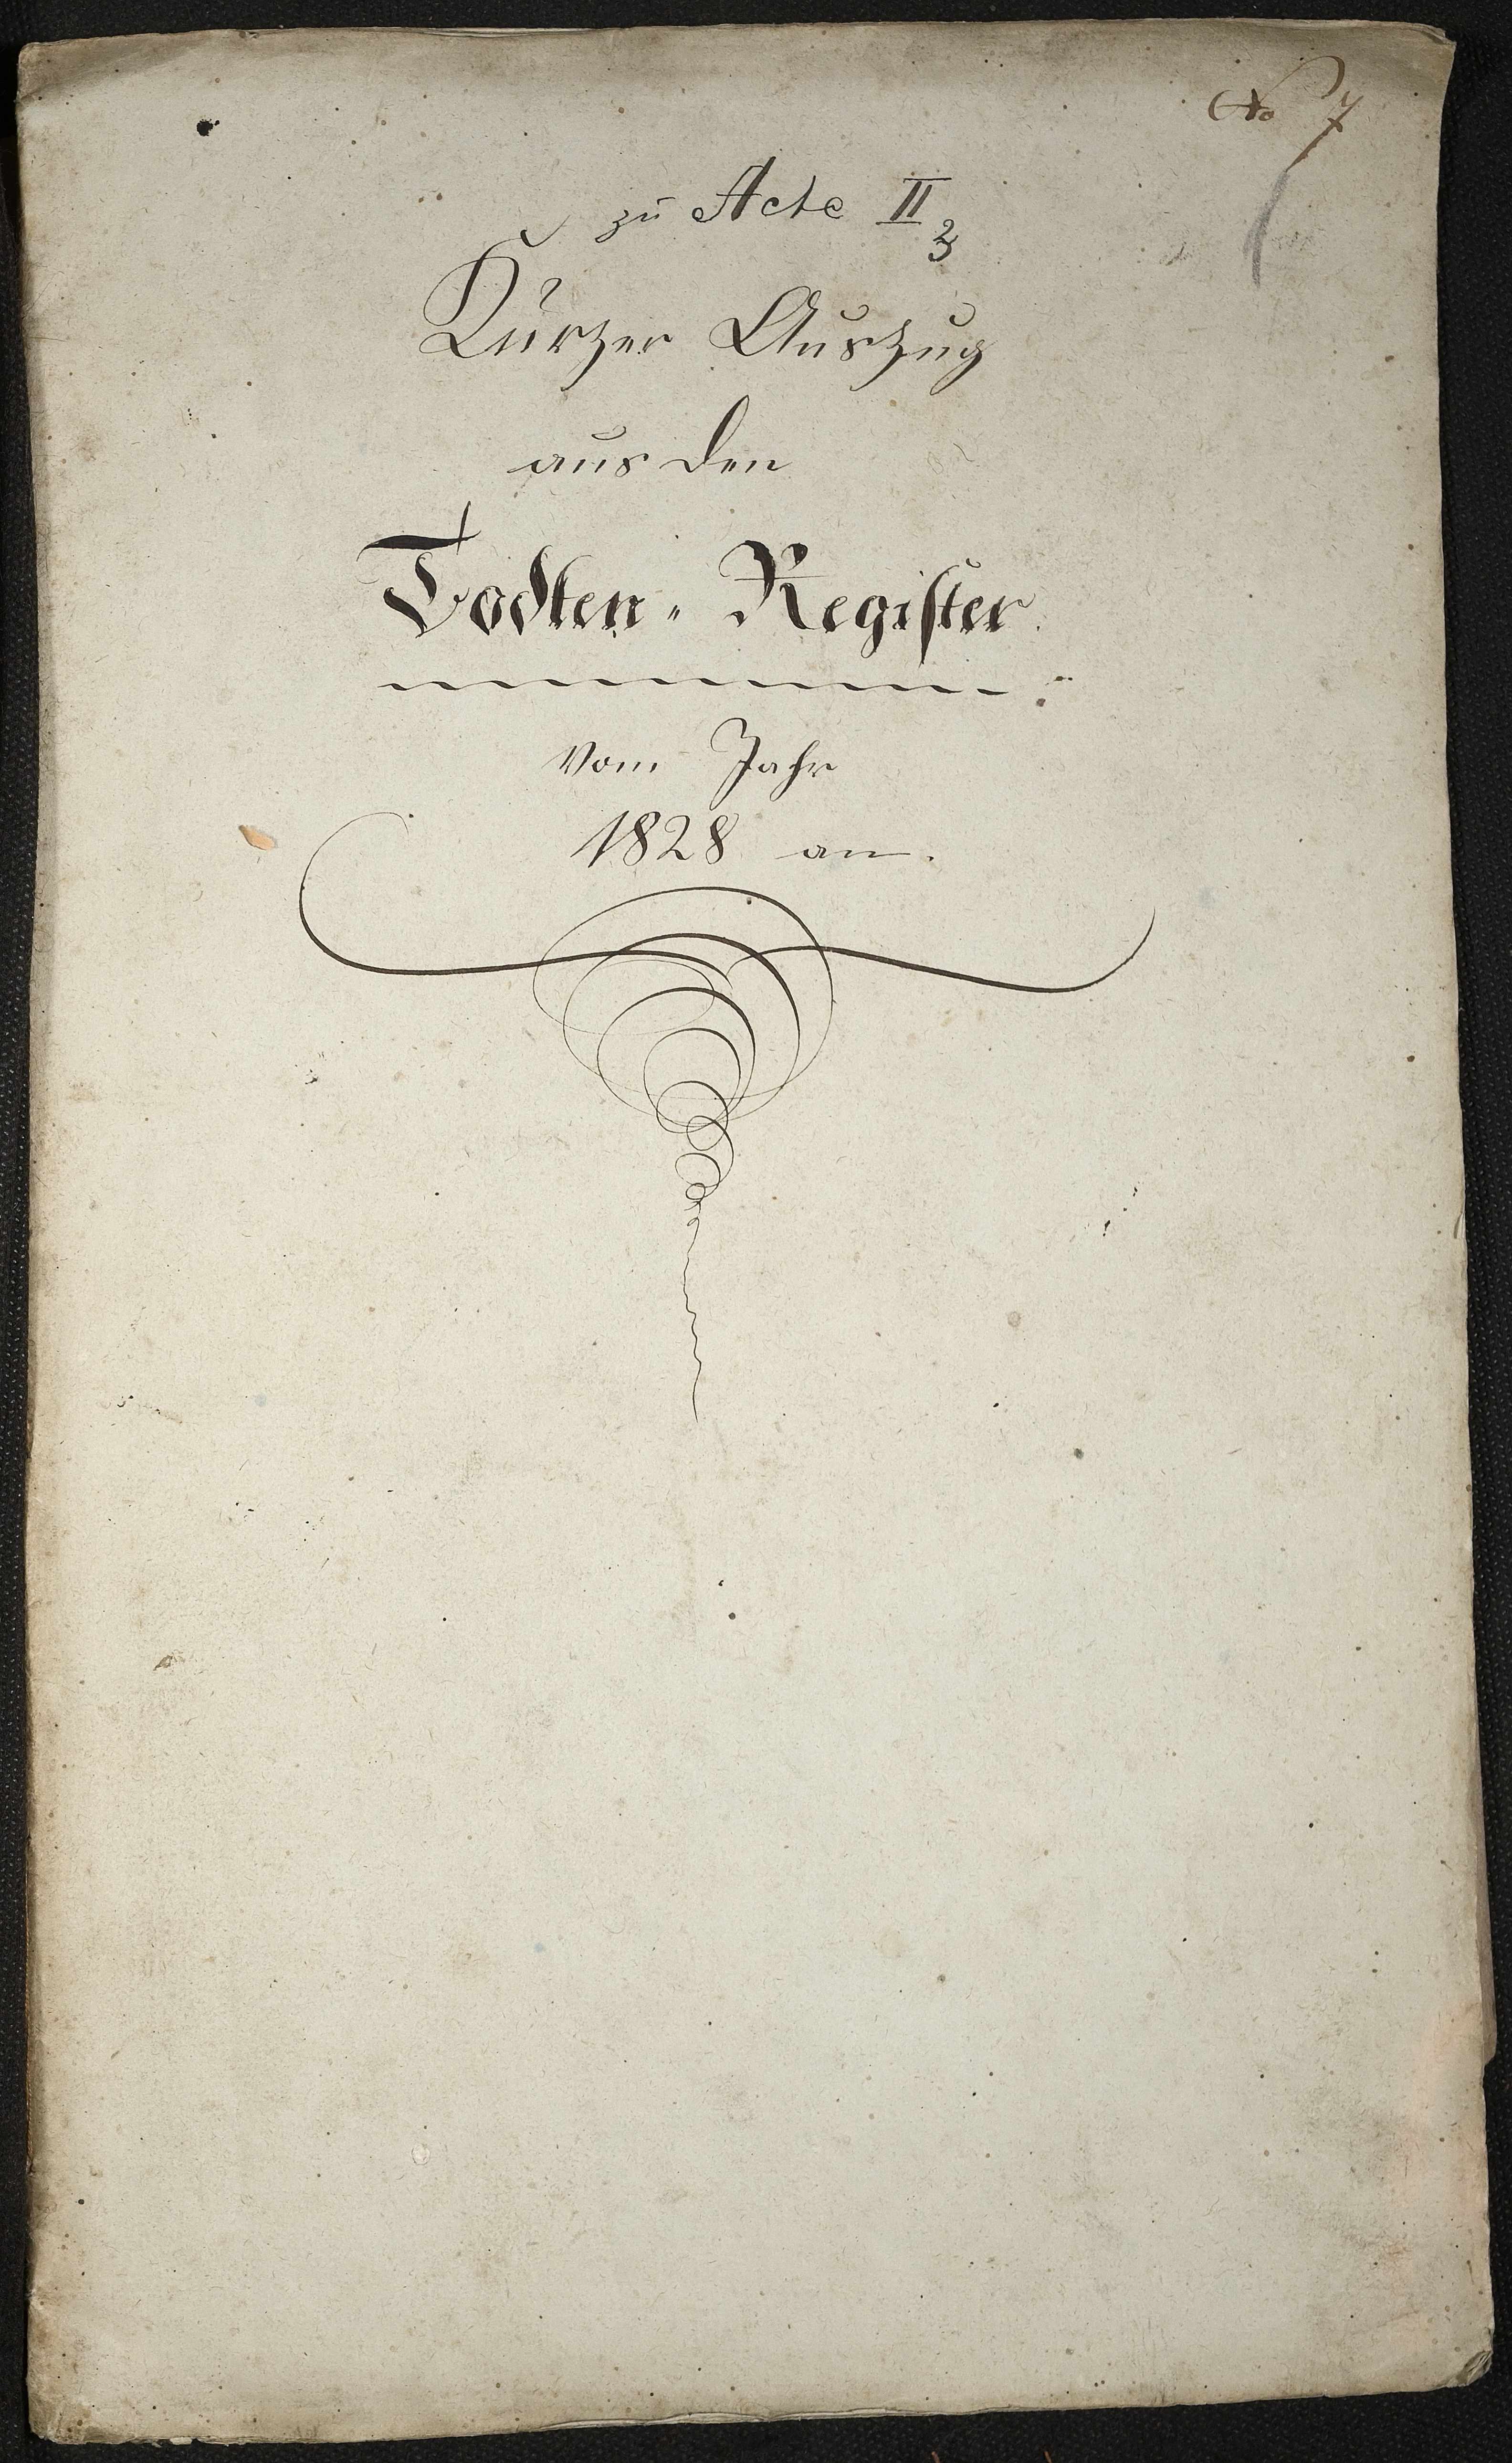 No 7
zu Acte II 3
Kurzer Auszug
aus den
Todten-Register
vom Jahr
1828 an.